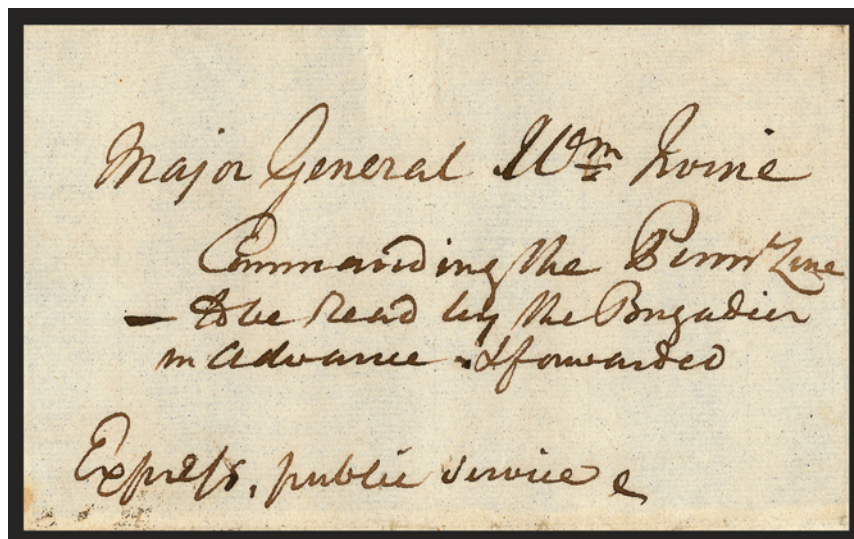 Major General Wm Irvine
Commanding the Pennˢ Line
— to be read by the Brigadier
in advance & forwarded
Express, public service